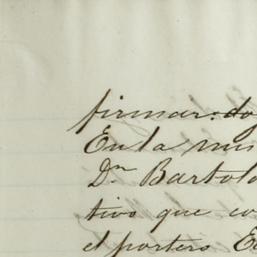 firmar: do
En la mis
Dn Bartolo
tivo que co
el portero